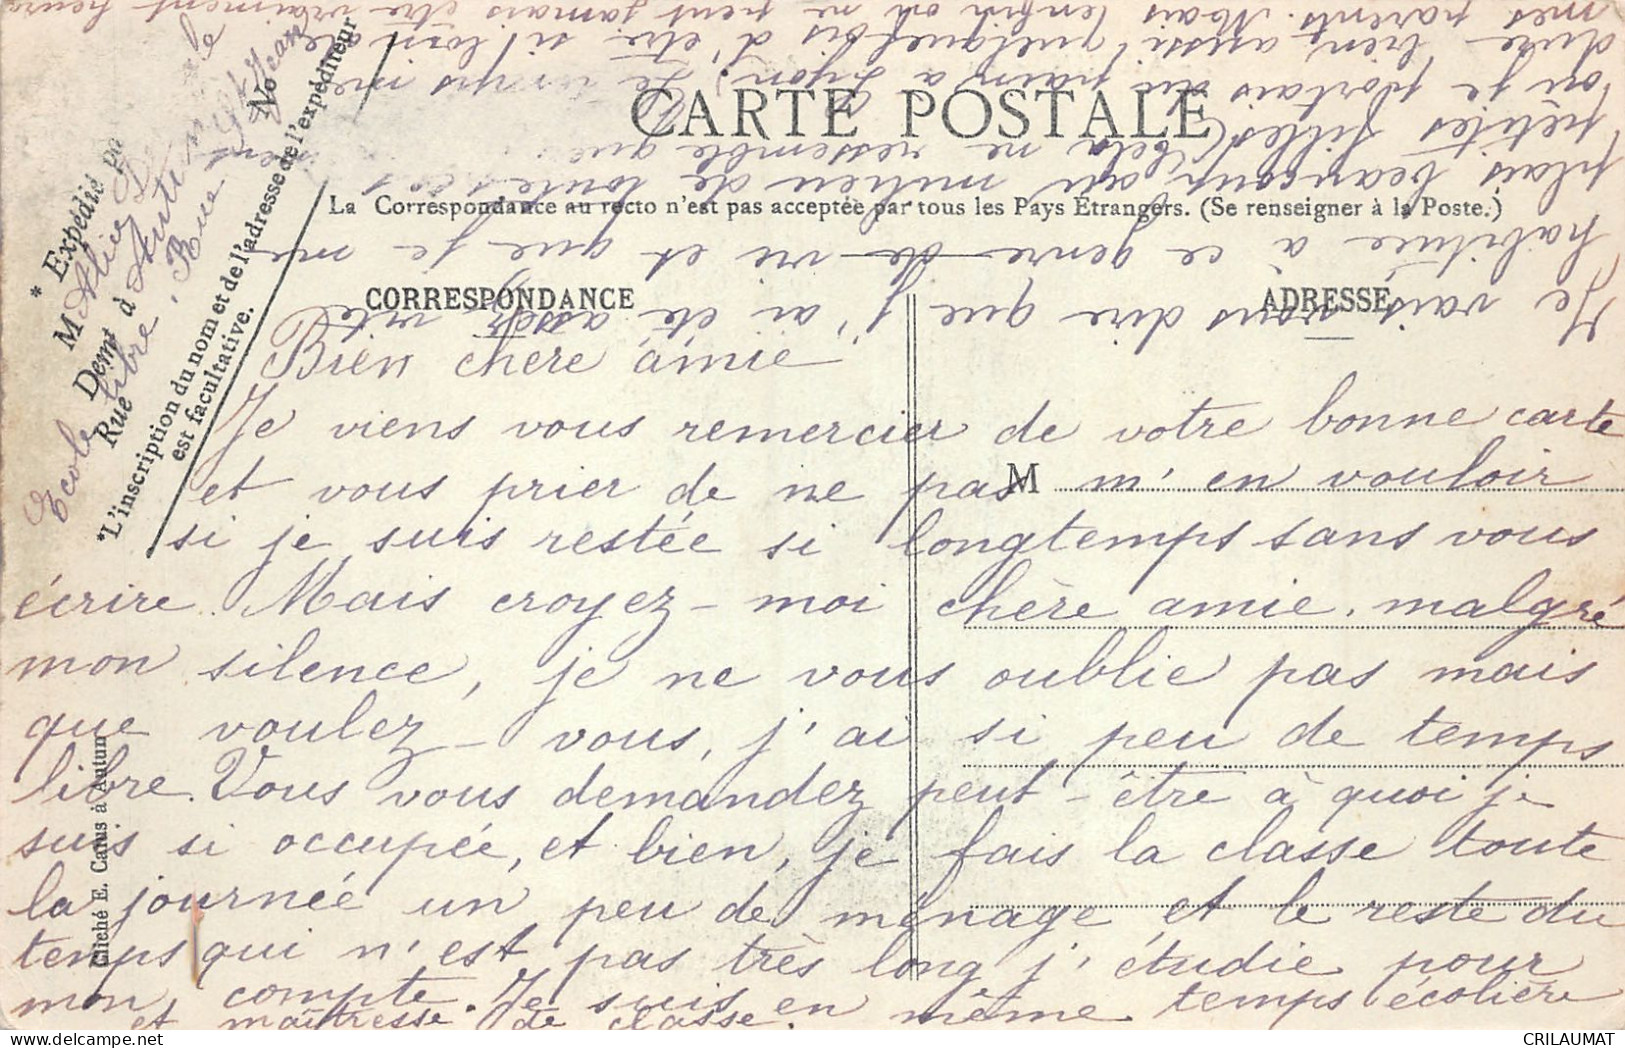 CARTE POSTALE
La Correspondance au recto n'est pas acceptée par tous les Pays Étrangers. (Se renseigner à la Poste.)
CORRESPONDANCE
ADRESSE
M
* Expédié pa
No
M
Demt à Antun
Rue
Rue St Jean
Ecole libre
*L'inscription du nom et de l'adresse de l'expéditeur
est facultative.
Cliché E. Carus à Autun
Bien chère amie
Je viens vous remercier de votre bonne carte
et vous prier de ne pas m'en vouloir
si je suis restée si longtemps sans vous
écrire. Mais croyez-moi chère amie. malgré
mon silence, je ne vous oublie pas mais
que voulez-vous, j'ai si peu de temps
libre. Vous vous demandez peut-être à quoi je
suis si occupée, et bien, je fais la classe toute
la journée un peu de ménage et le reste du
temps qui n'est pas très long j'étudie pour
mon compte. Je suis en même temps écolière
et maîtresse de classe.
Je vais vous dire que j'ai été assez vite
habituée à ce genre de vie et que je me
plais beaucoup au milieu de toutes ces
petites filles (cela ne ressemble que
où je portais du pain à Lyon). Le temps me
dure bien aussi quelquefois d'être si loin de
mes parents. Mais enfin on ne peut jamais être vraiment heure